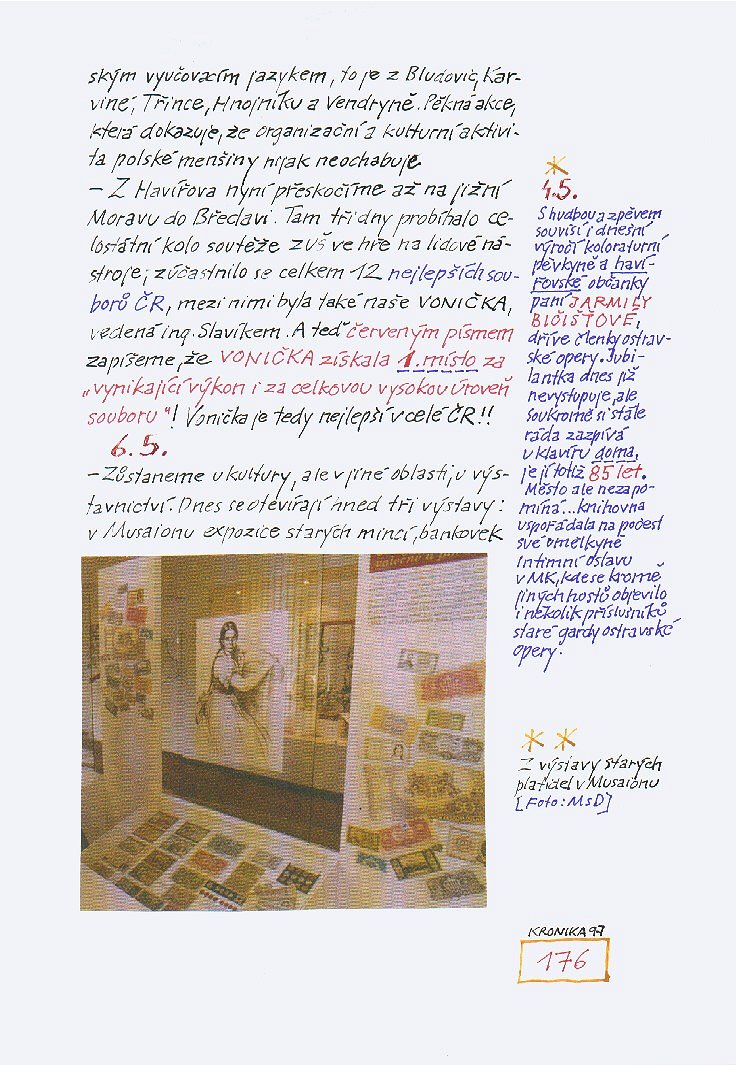 ským vyučovacím jazykem, to je z Bludovic, Kar-
viné, Třince, Hnojníku a Vendryně. Pěkná akce,
která dokazuje, že organizační a kulturní aktivi-
ta polské menšiny nijak neochabuje
– Z Havířova nyní přeskočíme až na jižní
Moravu do Břeclavi. Tam tři dny probíhalo ce-
lostátní kolo soutěže ZUŠ ve hře na lidové ná-
stroje; zúčastnilo se celkem 12 nejlepších sou-
borů ČR, mezi nimi byla také naše VONIČKA,
vedená ing. Slavíkem. A teď červeným písmem
zapíšeme, že VONIČKA získala 1. místo za
„vynikající výkon i za celkovou vysokou úroveň
souboru"! Vonička je tedy nejlepší v celé ČR!!
6.5.
– Zůstaneme u kultury, ale v jiné oblasti, u výs-
tavnictví. Dnes se otevírají hned tři výstavy:
v Musaionu expozice starých mincí, bankovek
*
4.5.
S hudbou a zpěvem
souvisí i dnešní
výročí koloraturní
pěvkyně a haví-
řovské občanky
paní JARMILY
dříve členky ostrav-
ské opery. Jubi-
lantka dnes již
nevystupuje, ale
soukromě si stále
ráda zazpívá
u klavíru doma,
je jí totiž 85 let.
Město ale nezapo-
míná... knihovna
uspořádala na počest
své umělkyně
intimní oslavu
v MK, kde se kromě
jiných hostů objevilo
i několik příslušníků
staré gardy ostravské
opery.
* *
Z výstavy starých
platidel v Musaionu
[Foto: MsD]
KRONIKA 97
176